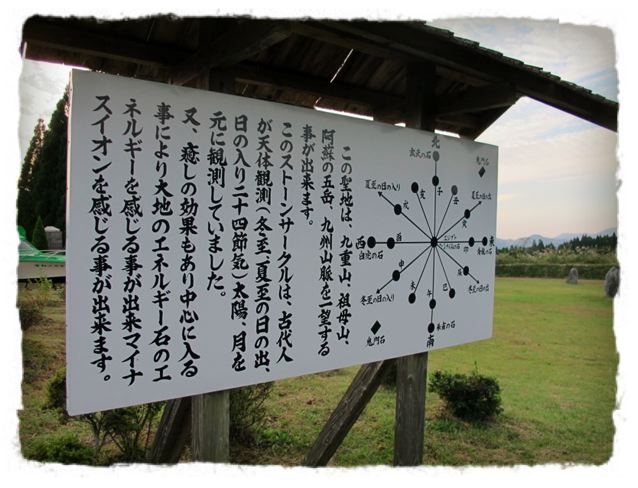 この聖地は、九重山、祖母山、
阿蘇の五岳、九州山脈を一望する
事が出来ます。
このストーンサークルは、古代人
が天体観測(冬至、夏至の日の出、
日の入り二十四節気)太陽、月を
元に観測していました。
又、癒しの効果もあり中心に入る
事により大地のエネルギー石のエ
ネルギーを感じる事が出来マイナ
スイオンを感じる事が出来ます。
北
玄武の石
鬼門石
子
丑
亥
夏至の日の入り
夏至の日の出
戌
寅
西
白虎の石
酉
卯
東
青龍の石
申
辰
冬至の日の入り
冬至の日の出
未
午
巳
鬼門石
朱雀の石
南